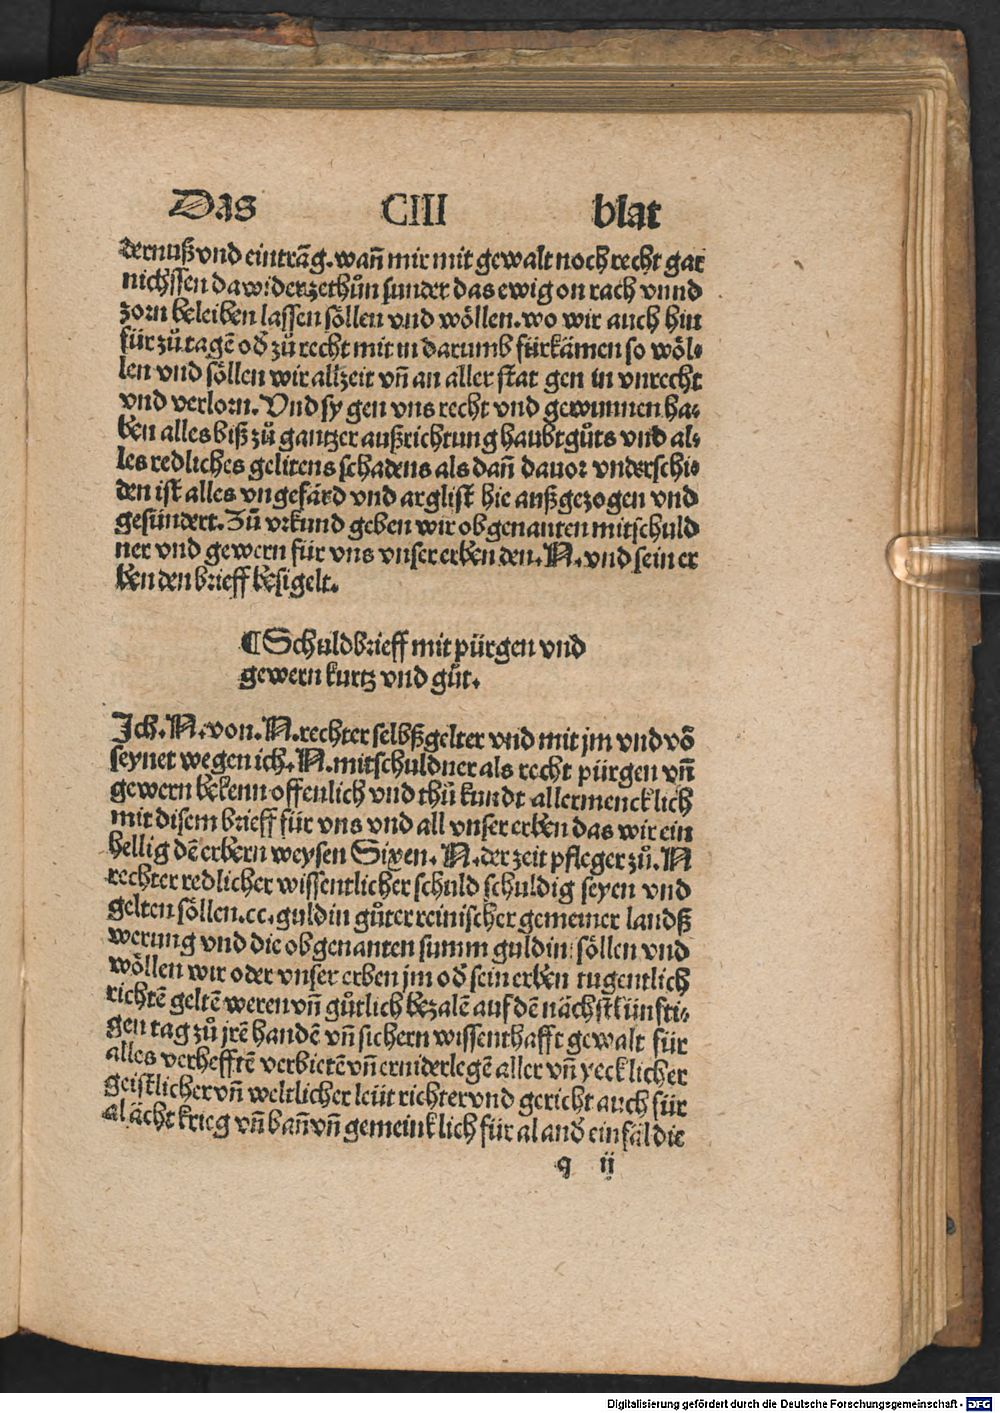 Das CIII blat
dernuß vnd eintrāg. wañ mir mit gewalt noch recht gar
nichssen dawiderzethůn sunder das ewig on rach vnnd
zorn beleiben lassen söllen vnd wöllen. wo wir auch hin
für zů tagē od̕ zů recht mit in darumb fürkämen so wöl⸗
len vnd söllen wir allzeit vñ an aller stat gen in vnrecht
vnd verlorn. Vnd sy gen vns recht vnd gewunnen ha⸗
ben alles biß zů gantzer außrichtung haubtgůts vnd al⸗
les redliches gelitens schadens als dañ dauor vnderschi⸗
den ist alles vngefärd vnd arglist hie außgezogen vnd
gesündert. Zů vrkund geben wir obgenanten mitschuld
ner vnd gewern für vns vnser erben den. N. vnd sein er
ben den brieff besigelt.
¶ Schuldbrieff mit pürgen vnd
gewern kurtz vnd gůt.
Ich. N. von. N. rechter selbßgelter vnd mit jm vnd vō
seynet wegen ich. N. mitschuldner als recht pürgen vñ
gewern bekenn offenlich vnd thů kundt allermencklich
mit disem brieff für vns vnd all vnser erben das wir ein
hellig dē erbern weysen Sixen. N. der zeit pfleger zů. N
rechter redlicher wissentlicher schuld schuldig seyen vnd
gelten söllen. cc. guldin gůter reinischer gemeiner landß
werung vnd die obgenanten summ guldin söllen vnd
wöllen wir oder vnser erben jm od̕ sein erben tugentlich
richtē geltē weren vñ gůtlich bezalē auf dē nächstkünfti⸗
gen tag zů jrē handē vñ sichern wissenthafft gewalt für
alles verhefftē verbietē vñ erniderlegē aller vñ yecklicher
geistlicher vñ weltlicher leüt richter vnd gericht auch für
al ächt krieg vñ bañ vñ gemeinklich für al and̕ einfäl die
q ij
Digitalisierung gefördert durch die Deutsche Forschungsgemeinschaft - DFG